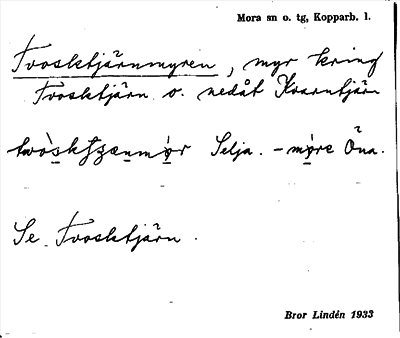 Mora sn o. tg, Kopparb. l.
Tvosktjärnmyren, myr kring
Tvosktjärn o. nedåt Kvarntjärn
Selja. – Öna.
Se Tvosktjärn.
Bror Lindén 1933